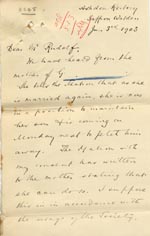 Ashdon Rectory
Saffron Walden
Jan. 3rd 1903
Dear Mr Rudolf,
We have heard from the
mother of G
She tells the Matron that as she
is married again, she is now
in a position to maintain
her son & is coming on
Monday next to fetch him
away. The Matron with
my consent has written
to the mother stating that
she can do so. I suppose
this is in accordance with
the usage of the Society.